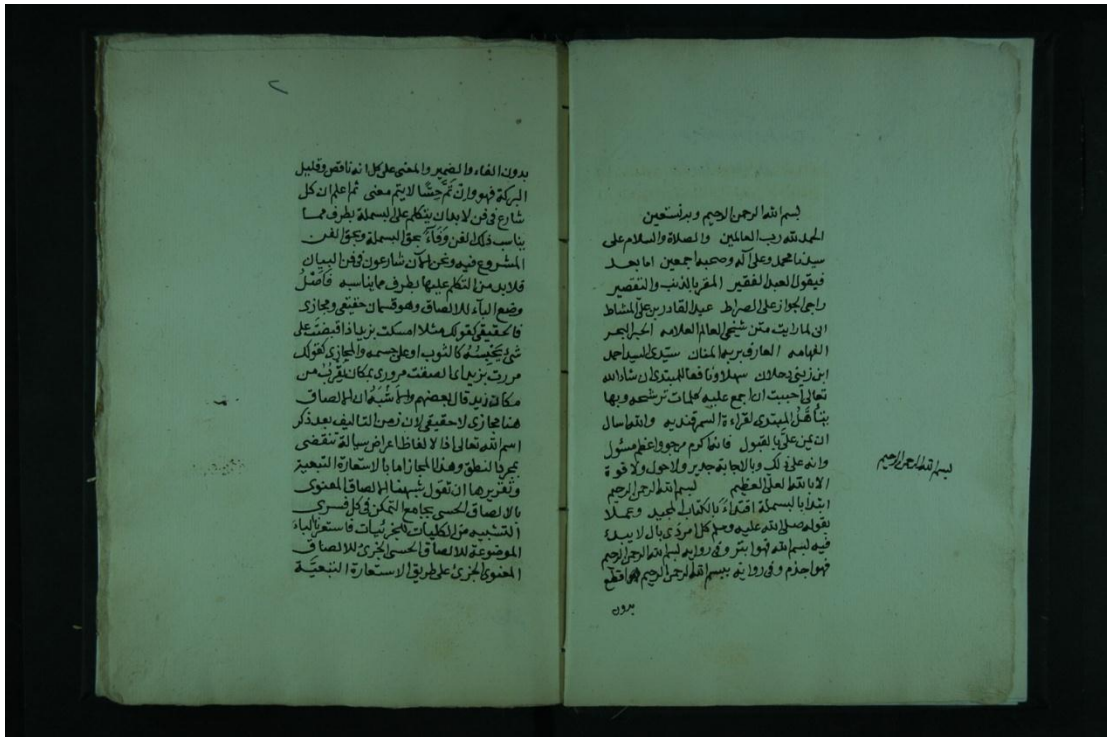 بسم الله الرحمن الرحيم وبه نستعين
الحمد لله رب العالمين والصلاة والسلام على
سيدنا محمد وعلى آله وصحبه اجمعين اما بعد
فيقول العبد الفقير المقر بالذنب والتقصير
راجي الجواز على الصراط عبد القادر بن علي المشاط
اني لما رايت متن شيخي العالم العلامه الحبر البحر
الفهامه العارف بربه المنان سيدي السيد احمد
ابن زيني دحلان سهلا ونافعا للمبتدي ان شاء الله
تعالى احببت ان اجمع عليه كلمات ترشحه وبها
يتأهل المبتدي لقراءة السمرقنديه والله اسال
ان يمن علي بالقبول فانه اكرم مرجو واعظم مسئول
وانه على ذلك وبالاجابة جدير ولا حول ولا قوة
الا بالله العلي العظيم بسم الله الرحمن الرحيم
ابتدأ بالبسملة اقتداءً بالكتاب المجيد وعملا
بقوله صلى الله عليه وسلم كل امر ذي بال لا يبدء
فيه ببسم الله فهو ابتر وفي روايه بسم الله الرحمن الرحيم
فهو اجذم وفي روايه ببسم الله الرحمن الرحيم فهو اقطع
بدون
بسم الله الرحمن الرحيم
٢
بدون الفاء والضمير والمعنى على كل انه ناقص وقليل
البركة فهو وان تمَّ حِسًّا لا يتم معنى ثم اعلم ان كل
شارع في فن لا بد ان يتكلم على البسملة بطرف مما
يناسب ذلك الفن وَفَاءً بحق البسملة وبحق الفن
المشروع فيه ونحن الآن شارعون في فن البيان
فلا بد من التكلم عليها بطرف مما يناسبه فَأصْلُ
وضع الباء للالصاق وهو قسمان حقيقي ومجازي
فالحقيقي كقولك مثلا امسكت بزيد اذا قبضت على
شئ يحبسه كالثوب او على جسمه والمجازي كقولك
مررت بزيد اي الصقت مروري بمكان يقرب من
مكان زيد قال بعضهم والأشبه ان الالصاق
هنا مجازي لا حقيقي لان زمن التاليف بعد ذكر
اسم الله تعالى اذ الالفاظ اعراض سيالة تنقضي
بمجرد النطق وهذا المجاز اما بالاستعارة التبعية
وتقريرها ان تقول شبهنا الالصاق المعنوي
بالالصاق الحسي بجامع التمكن في كل فسرى
التشبيه من الكليات للجزئيات فاستعرنا الباء
الموضوعة للالصاق الحسي الجزئي للالصاق
المعنوي الجزئي على طريق الاستعارة التبعيَّة